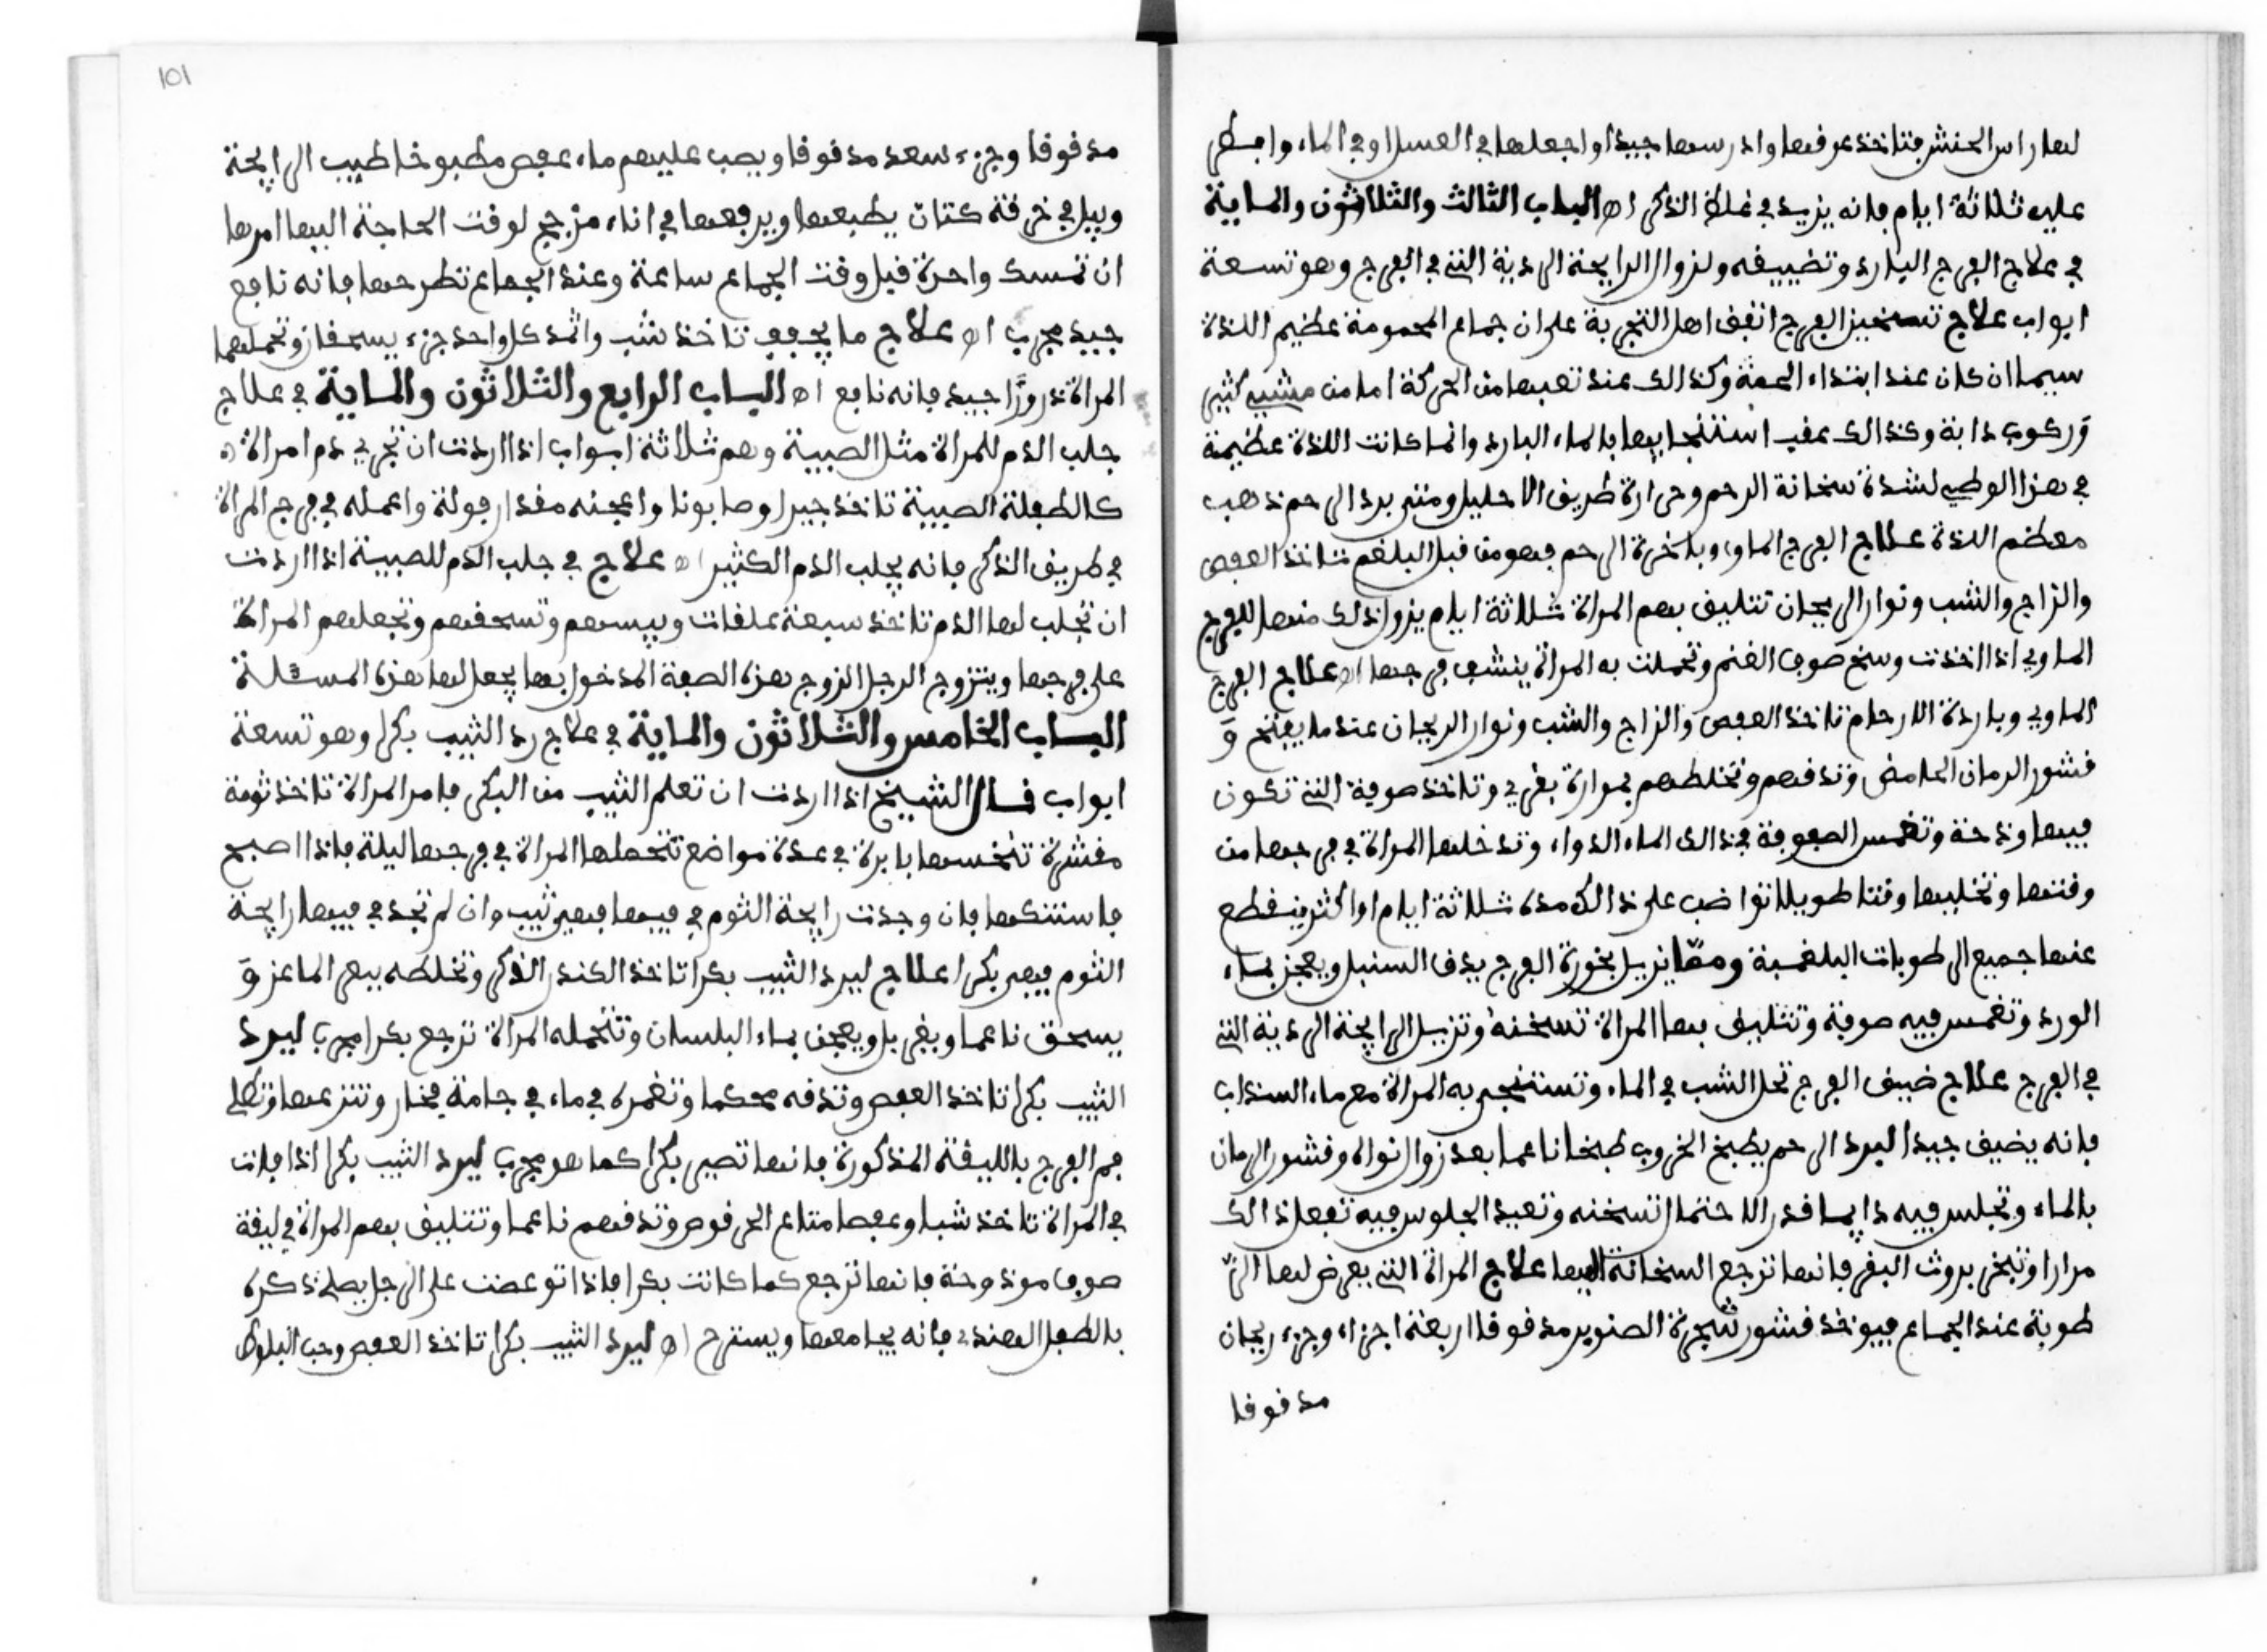 لها راس الحنش فتاخذ عرفها وادرسها جيدا واجعلها في العسل او في الماء وافطر
عليه ثلاثة ايام فانه يزيد في غلظ الذكر اه الباب الثالث والثلاثون والماية
في علاج الفرج البارد وتضييفه ولزوال الرايحة الردية التي في الفرج وهو تسعة
ابواب علاج تسخين الفرج اتفق اهل التجربة على ان جماع المحمومة عظيم اللذة
سيما ان كان عند ابتداء الحمة وكذالك عند تعبها من الحركة اما من مشيي كثير
وركوب دابة وكذالك عقب استنجايها بالماء البارد وانما كانت اللذة عظيمة
في هذا الوطي لشدة سخانة الرحم وحرارة طريق الاحليل ومتى برد الرحم ذهب
معظم اللذة علاج الفرج الماوي وباخرة الرحم فهو من قبل البلغم تاخذ العفص
والزاج والشب ونوار الريحان تتليف بهم المراة ثلاثة ايام يزول ذلك منها للفرج
الماوي اذا اخذت وسخ صوف الغنم وتحملت به المراة ينشف فرجها اه علاج الفرج
الماوي وباردة الارحام تاخذ العفص والزاج والشب ونوار الريحان عند ما يفتح و
قشور الرمان الحامض وتدفهم وتخلطهم بمرارة بقري وتاخذ صوفة التي تكون
فيها وذحة وتغمس الصوفة في ذالك الماء الدواء وتدخلها المراة في فرجها من
وقتها وتخليها وقتا طويلا تواضب على ذالك مدة ثلاثة ايام او اكثر ينقطع
عنها جميع الرطوبات البلغمية ومما يزيل بخورة الفرج يدق السنبل ويعجن بماء
الورد وتغمس فيه صوفة وتتليف بها المراة تسخنه وتزيل الرايحة الردية التي
في الفرج علاج ضيق الفرج تحل الشب في الماء وتستنجي به المراة مع ماء السنداب
فانه يضيف جيدا لبرد الرحم يطبخ الخروب طبخا ناعما بعد زوال نواله وقشور الرمان
بالماء وتجلس فيه دايما قدر الاحتمال تسخنه وتعيد الجلوس فيه تفعل ذالك
مرارا وتبخر بروث البقر فانها ترجع السخانة اليها علاج المراة التي يعرض لها الر
طوبة عند الجماع فيوخذ قشور شجرة الصنوبر مدقوقا اربعة اجزاء وجزء ريحان
مدقوقا
مدقوقا وجزء سعد مدقوقا ويصب عليهم ماء عفص مطبوخا طيب الرايحة
ويبل في خرقة كتان يطبعها ويرفعها في اناء مزجج لوقت الحاجة اليها امرها
ان تمسك واحدة قبل وقت الجماع ساعة وعند الجماع تطرحها فانه نافع
جيد مجرب اه علاج ما يجفف تاخذ شب واثمد كل واحد جزء يسحقان وتحملهما
المراة ذرورا جيد فانه نافع اه الباب الرابع والثلاثون والماية في علاج
جلب الدم للمراة مثل الصبية وهم ثلاثة ابواب اذا اردت ان تجري دم امراة
كالطفلة الصبية تاخذ جيرا وصابونا واعجنه مقدار فولة واعمله في فرج المراة
في طريق الذكر فانه يجلب الدم الكثير اه علاج في جلب الدم للصبية اذا اردت
ان تجلب لها الدم تاخذ سبعة علقات وييبسهم وتسحقهم وتجعلهم المراة
على فرجها ويتزوج الرجل الزوج بهذه الصفة المدخول بها يجعل لها هذه المسئلة
الباب الخامس والثلاثون والماية في علاج رد الثيب بكرا وهو تسعة
ابواب قال الشيخ اذا اردت ان تعلم الثيب من البكر فامر المراة تاخذ ثومة
مقشرة تنخسها بابرة في عدة مواضع تتحملها المراة في فرجها ليلة فاذا اصبح
فاستنكها فان وجدت رايحة الثوم في فيها فهي ثيب وان لم تجد في فيها رايحة
الثوم فهي بكرا علاج ليرد الثيب بكرا تاخذ الكندر الذكر وتخلطه ببعر الماعز و
يسحق ناعما ويغربل ويعجن بماء البلسان وتتحمله المراة ترجع بكرا مجرب ليرد
الثيب بكرا تاخذ العفص وتدقه محكما وتغمره في ماء في جامة فخار وتنزعها وتطلي
فم الفرج بالليفة المذكورة فانها تصير بكرا كما هو مجرب ليرد الثيب بكرا اذا فات
في المراة تاخذ شبا وعفصا متاع الحرقوص وتدقهم ناعما وتتليف بهم المراة في ليفة
صوف موذوحة فانها ترجع كما كانت بكرا فاذا توعضت على الرجل يطلي ذكره
بالطفل الهندي فانه يجامعها ويسترح اه ليرد الثيب بكرا تاخذ العفص وحب البلوط
101